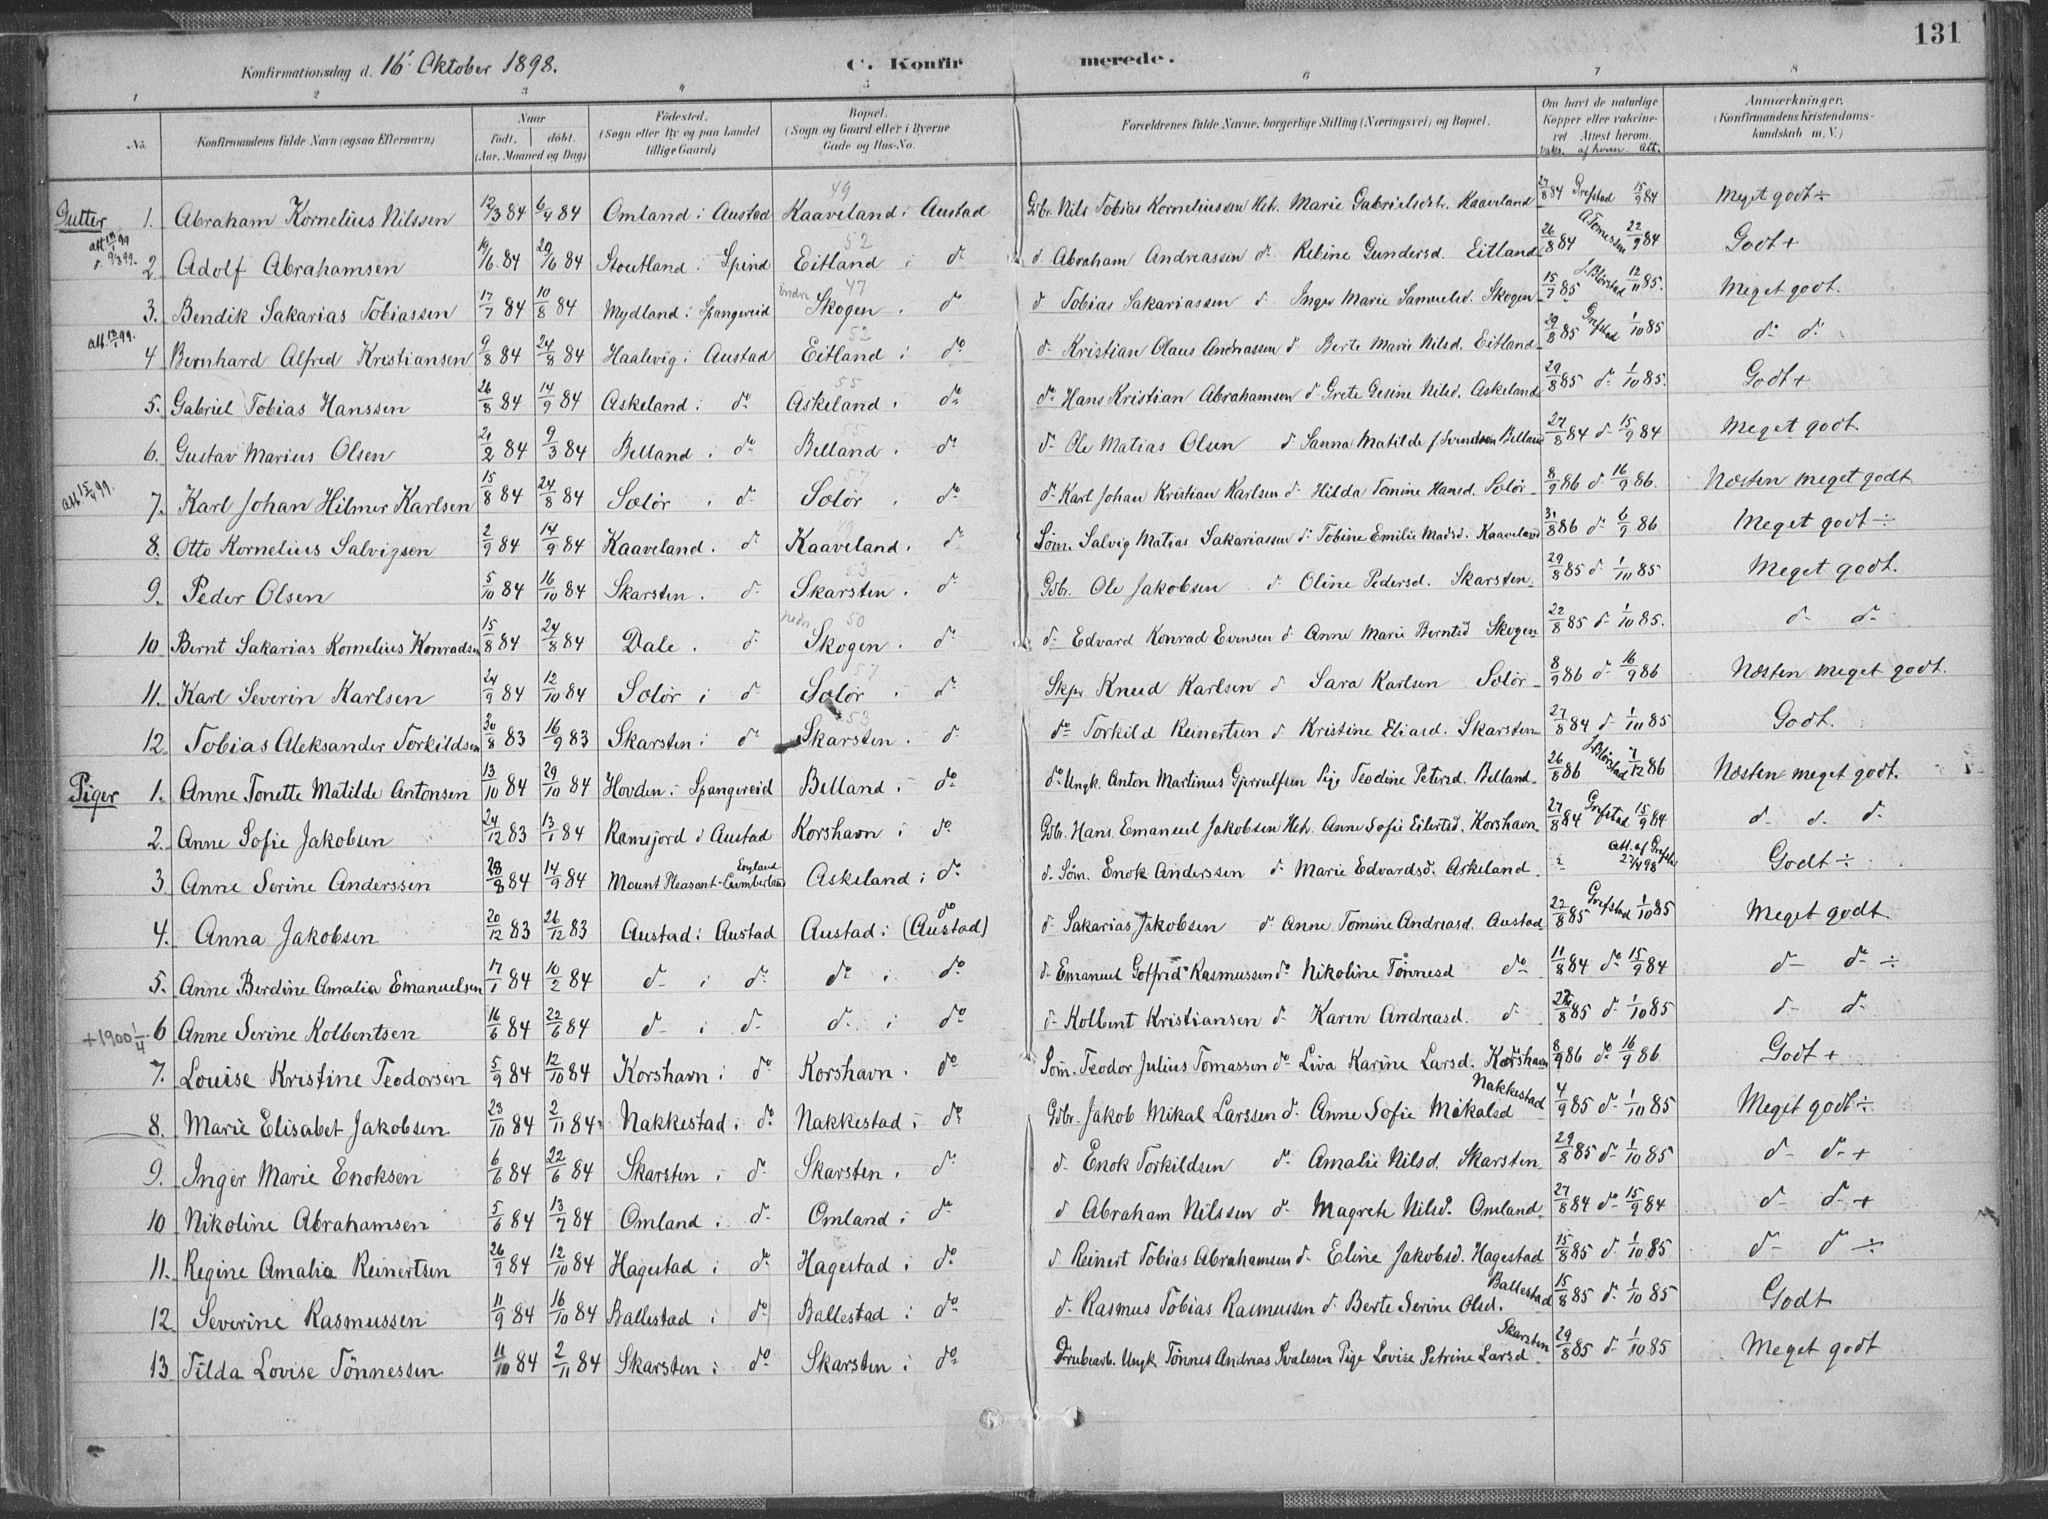 131
Konfirmationsdag d. 16' Oktober 1898.
C. Konfirmerede.
1 2 3 4 5 6 7 8
No. Konfirmandens fulde Navn (ogsaa Efternavn) Naar født. døbt. (Aar, Maaned og Dag) Fødested. (Sogn eller By og paa Landet tillige Gaard) Bopæl. (Sogn og Gaard eller i Byerne Gade og Hus-No. Forældrenes fulde Navne, borgerlige Stilling (Næringsvei) og Bopæl. Om havt de naturlige Kopper eller vaccineret Attest herom. Vaks. af hvem Att. Anmærkninger. (Konfirmandens Kristendomskundskab m. V.)
Gutter 1. Abraham Kornelius Nilssen 12/3 84 6/4 84 Omland i Austad 49 Kaaveland i Austad Gbr. Nils Tobias Korneliussen Hst. Marie Gabrielsdtr. Kaaveland 27/8 84 Grefstad 15/9 84 Meget godt ÷
2. Adolf Abrahamsen 19/6 84 29/6 84 Stoutland i Spind 52 Eitland i do d Abraham Andreassen do Rebine Gundersd. Eitland 26/8 84 A. Tomessen 22/9 84 Godt +
3. Bendik Sakarias Tobiassen 17/7 84 10/8 84 Mydland i Spangereid indre 47 Skogen i do d Tobias Sakariassen d Inger Marie Samuelsd. Skogen 15/7 85 J. Blörstad 12/11 85. Meget godt.
att. 13/1 99. 4 Bernhard Alfred Kristiansen 9/8 84 24/8 84 Haalvig i Austad 52 Eitland i do d Kristian Olaus Andreassen d Berte Marie Nilsd. Eitland 29/8 85 Grefstad 1/10 85 do do
5. Gabriel Tobias Hanssen 26/8 84 14/9 84 Askeland i do 55 Askeland i do do Hans Kristian Abrahamsen d Grete Gesine Nilsd. Askeland 29/8 85 do 1/10 85. Godt +
6. Gustav Marius Olsen 21/2 84 9/3 84 Belland i do 55 Belland i do d Ole Matias Olsen d Sanna Matilde f. Svendsen Belland 27/8 84 d 15/9 84 Meget godt.
att 15/4 99. 7. Karl Johan Hilmer Karlsen 15/8 84 24/8 84 Sælör i do 57 Sælör i do d Karl Johan Kristian Karlsen d Hilda Tomine Hansd. Sælör 8/9 86 d 16/9 86. Næsten meget godt
8. Otto Kornelius Salvigsen 2/9 84 14/9 84 Kaaveland i d 49 Kaaveland i do Söm. Salvig Matias Sakariassen d Tobine Emilie Madsd. Kaaveland 31/8 86 do 6/9 86 Meget godt ÷
9. Peder Olsen 5/10 84 16/10 84 Skarsten i do 53 Skarsten i do Gbr. Ole Jakobsen d Oline Pedersd. Skarsten 29/8 85 d 1/10 85 Meget godt.
10 Bernt Sakarias Kornelius Konradsen 15/8 84 24/8 84 Dale i d nedr 50 Skogen i do d Edvard Konrad Evensen d Anne Marie Berntsd Skogen 22/8 85 d 1/10 85. d d
11. Karl Severin Karlsen 24/9 84 12/10 84 Sælör i d 57 Sælör i do Skpr Knud Karlsen d Sara Karlsen Sælör 8/9 86 do 16/9 86 Næsten meget godt.
12. Tobias Aleksander Torkildsen 30/8 83 16/9 83 Skarsten i do 53 Skarsten i d do Torkild Reinertsen d Kristine Eliasd. Skarsten 27/8 84 d 1/10 85 Godt.
Piger 1. Anne Tonette Matilde Antonsen 13/10 84 29/10 84 Hovden i Spangereid Belland i do do Ungk. Anton Martinus Gjerrulfsen Pige Teodine Petersd. Belland 26/8 86 J. Blörstad 7/12 86 Næsten meget godt.
2. Anne Sofie Jakobsen 24/12 83 13/1 84 Ramsjord i Austad Korshavn i do Gbr. Hans Emanuel Jakobsen Hst. Anne Sofie Eilertsd. Korshavn 27/8 84 Grefstad 15/9 84 d d d
3. Anne Serine Anderssen 28/8 84 14/9 84 Mount Pleasant-Cumberland England Askeland i do d Söm. Enok Anderssen d Marie Edvardsd. Askeland Att. af Grefstad Godt ÷
4. Anna Jakobsen 20/12 83 26/12 83 Austad i Austad Austad i (Austad) do d Sakarias Jakobsen d Anne Tomine Andreasd. Austad 22/8 85 Grefstad 1/10 85 Meget godt
5. Anne Berdine Amalia Emanuelsen 17/1 84 10/2 84 d i do do i do d Emanuel Gotfrid Rasmussen do Nikoline Tønnesd do 11/8 84 do 15/9 84 d do ÷
+1900 1/4 6 Anne Serine Kolbentsen 16/6 84 22/6 84 d i d d i do d Kolbent Kristiansen d Karen Andreasd. d 22/8 85 d 1/10 85 d d
7. Louise Kristine Teodorsen 5/9 84 12/10 84 Korshavn i do Korshavn i do Söm. Teodor Julius Tomassen do Liva Karine Larsd. Korshavn 8/9 86 do 16/9 86 Godt +
8. Marie Elisabet Jakobsen 23/10 84 2/11 84 Nakkestad i do Nakkestad i do Gbr. Jakob Mikal Larssen d Anne Sofie Mikalsd Nakkestad 4/9 85 d 1/10 85 Meget godt ÷
9. Inger Marie Enoksen 6/6 84 22/6 84 Skarsten i do Skarsten i do d Enok Torkildsen do Amalie Nilsd. Skarsten 29/8 85 d 1/10 85 d d +
10 Nikoline Abrahamsen 5/6 84 13/7 84 Omland i d Omland i do d Abraham Nilssen do Magrete Nilsd. Omland 27/8 84 do 15/9 84 d d +
11. Regine Amalia Reinertsen 26/9 84 12/10 84 Hagestad i do Hagestad i do d Reinert Tobias Abrahamsen d Eline Jakobsd. Hagestad 15/8 85 d 1/10 85 d d ÷
12. Severine Rasmussen 11/9 84 16/10 84 Ballestad i do Ballestad i do d Rasmus Tobias Rasmussen d Berte Serine Olsd. Ballestad 15/8 85 d 1/10 85 Godt
13. Tilda Lovise Tönnessen 11/10 84 2/11 84 Skarsten i do Skarsten i do Ungk Tönnes Andreas Svalesen Pige Lovise Petrine Larsd Skarsten 29/8 85 d 1/10 85 Meget godt